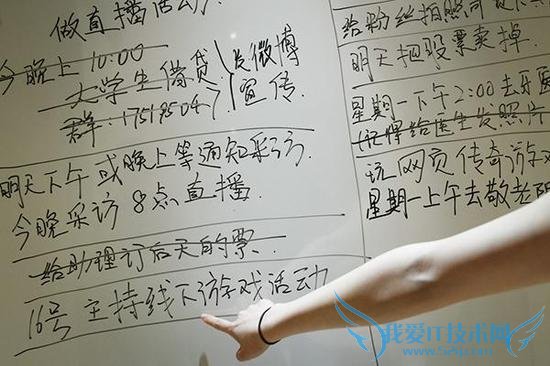 做直播活动.
今晚上 10:00
大学生借贷
群:17519504
发微博
宣传.
明天下午或晚上等通知采访.
今晚采访8点直播
给助理订后天的票.
16号 主持线下游戏活动
给粉丝拍照
明天把股票卖掉.
星期一下午2:00去牙医
(记得给医生发照片
玩网页传奇游戏
星期一上午去敬老院
我爱IT技术网
www.52ij.com